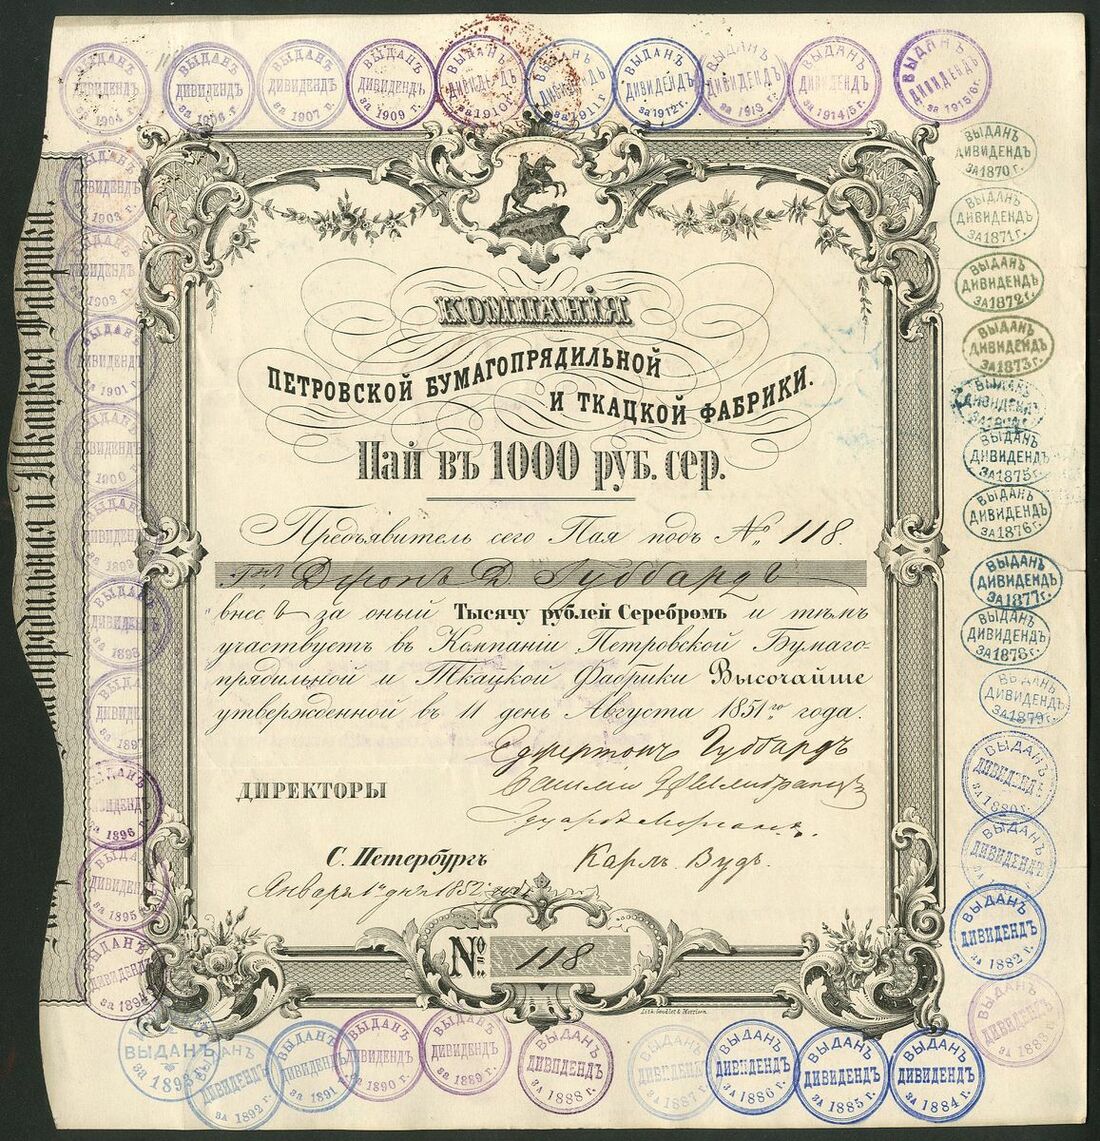 ВЫДАНЪ ДИВИДЕНДЪ за 1904 г.
ВЫДАНЪ ДИВИДЕНДЪ за 1906 г.
ВЫДАНЪ ДИВИДЕНДЪ за 1907 г.
ВЫДАНЪ ДИВИДЕНДЪ за 1909 г.
ВЫДАНЪ ДИВИДЕНДЪ за 1910 г.
ВЫДАНЪ ДИВИДЕНДЪ за 1911 г.
ВЫДАНЪ ДИВИДЕНДЪ за 1912 г.
ВЫДАНЪ ДИВИДЕНДЪ за 1913 г.
ВЫДАНЪ ДИВИДЕНДЪ за 1914/5 г.
ВЫДАНЪ ДИВИДЕНДЪ за 1915/6 г.
КОМПАНІЯ
ПЕТРОВСКОЙ БУМАГОПРЯДИЛЬНОЙ
И ТКАЦКОЙ ФАБРИКИ.
Пай въ 1000 руб. сер.
Предъявитель сего Пая подъ № 118.
Гнъ Джонъ Д Губбардъ
внесъ за оный Тысячу рублей Серебромъ и тѣмъ
участвуетъ въ Компаніи Петровской Бумаго-
прядильной и Ткацкой Фабрики Высочайше
утвержденной въ 11 день Августа 1851го года.
Еджертонъ Губбардъ
ДИРЕКТОРЫ
Карлъ Вудъ.
С. Петербургъ
Января 1 дня 1852
№ 118
Lith. Goodlet & Morrison
ВЫДАНЪ ДИВИДЕНДЪ ЗА 1870 г.
ВЫДАНЪ ДИВИДЕНДЪ ЗА 1871 г.
ВЫДАНЪ ДИВИДЕНДЪ ЗА 1872 г.
ВЫДАНЪ ДИВИДЕНДЪ ЗА 1873 г.
ВЫДАНЪ ДИВИДЕНДЪ
ВЫДАНЪ ДИВИДЕНДЪ ЗА 1875 г.
ВЫДАНЪ ДИВИДЕНДЪ ЗА 1876 г.
ВЫДАНЪ ДИВИДЕНДЪ ЗА 1877 г.
ВЫДАНЪ ДИВИДЕНДЪ ЗА 1878 г.
ВЫДАНЪ ДИВИДЕНДЪ ЗА 1879 г.
ВЫДАНЪ ДИВИДЕНДЪ ЗА 1880 г.
ВЫДАНЪ ДИВИДЕНДЪ
ВЫДАНЪ ДИВИДЕНДЪ за 1882 г.
ВЫДАНЪ ДИВИДЕНДЪ за 1883 г.
ВЫДАНЪ ДИВИДЕНДЪ за 1884 г.
ВЫДАНЪ ДИВИДЕНДЪ за 1885 г.
ВЫДАНЪ ДИВИДЕНДЪ за 1886 г.
ВЫДАНЪ ДИВИДЕНДЪ за 1887 г.
ВЫДАНЪ ДИВИДЕНДЪ за 1888 г.
ВЫДАНЪ ДИВИДЕНДЪ за 1889 г.
ВЫДАНЪ ДИВИДЕНДЪ за 1890 г.
ВЫДАНЪ ДИВИДЕНДЪ за 1891 г.
ВЫДАНЪ ДИВИДЕНДЪ за 1892 г.
ВЫДАНЪ за 1893 г.
ВЫДАНЪ ДИВИДЕНДЪ за 1894 г.
ВЫДАНЪ ДИВИДЕНДЪ за 1895 г.
ВЫДАНЪ ДИВИДЕНДЪ за 1896 г.
ВЫДАНЪ ДИВИДЕНДЪ за 1897 г.
ВЫДАНЪ ДИВИДЕНДЪ 1898 г.
ВЫДАНЪ ДИВИДЕНДЪ 1899 г.
ВЫДАНЪ ДИВИДЕНДЪ 1900 г.
ВЫДАНЪ ДИВИДЕНДЪ 1901 г.
ВЫДАНЪ ДИВИДЕНДЪ 1902 г.
ВЫДАНЪ ДИВИДЕНДЪ 1903 г.
Бумагопрядильная и Ткацкая Фабрика.